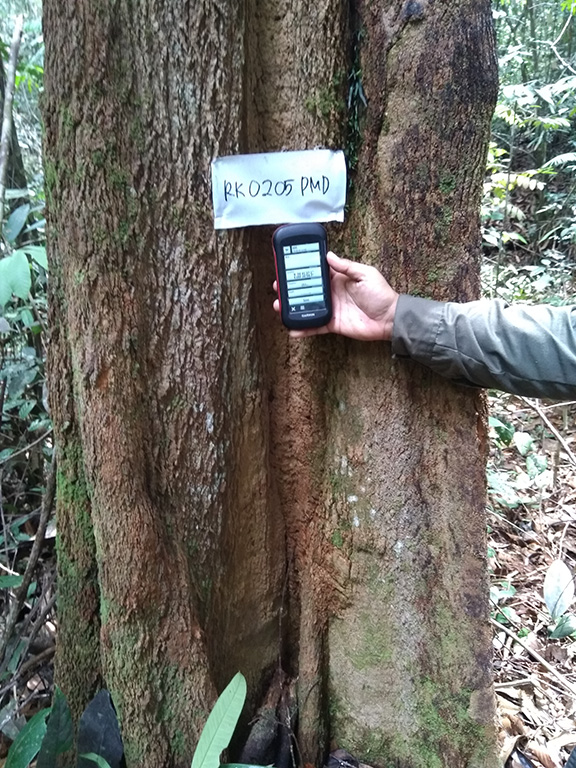 RK0205 PMD
GARMIN